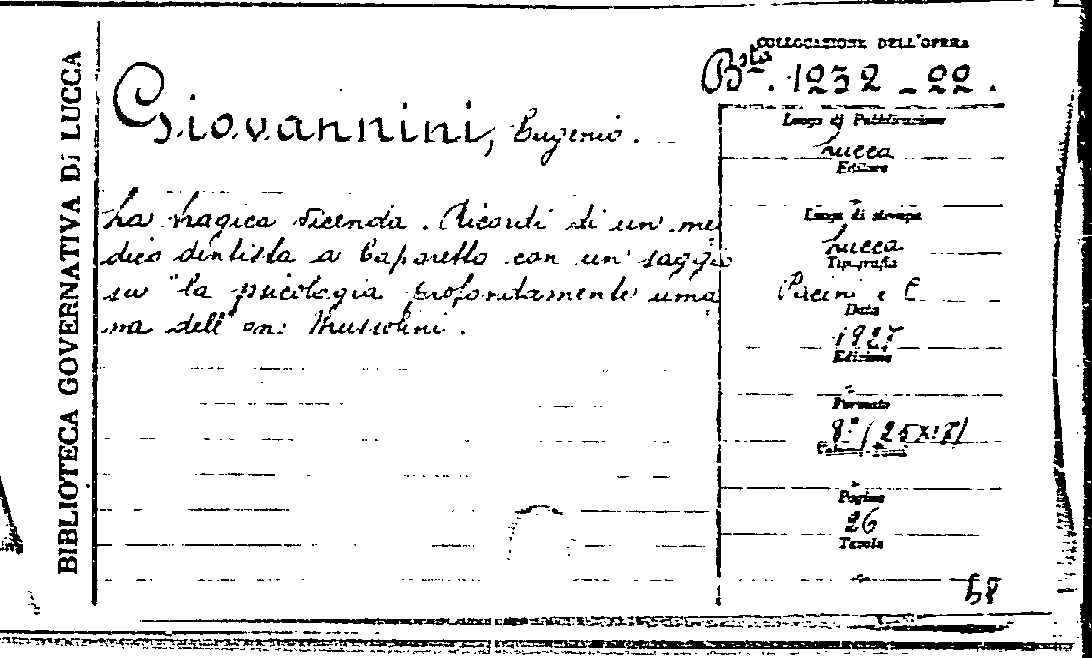 BIBLIOTECA GOVERNATIVA DI LUCCA
COLLOCAZIONE DELL'OPERA
Bsta. 1232 - 22.
Giovannini, Eugenio.
La tragica vicenda. Ricordi di un me
dico dentista a Caporetto con un saggio
su "la psicologia profondamente uma
na dell'on: Mussolini.
Luogo di Pubblicazione
Lucca
Editore
Luogo di stampa
Lucca
Tipografia
Pacini e C
Data
1927
Edizione
Formato
8° (25x18)
Volumi - Tomi
Pagine
26
Tavole